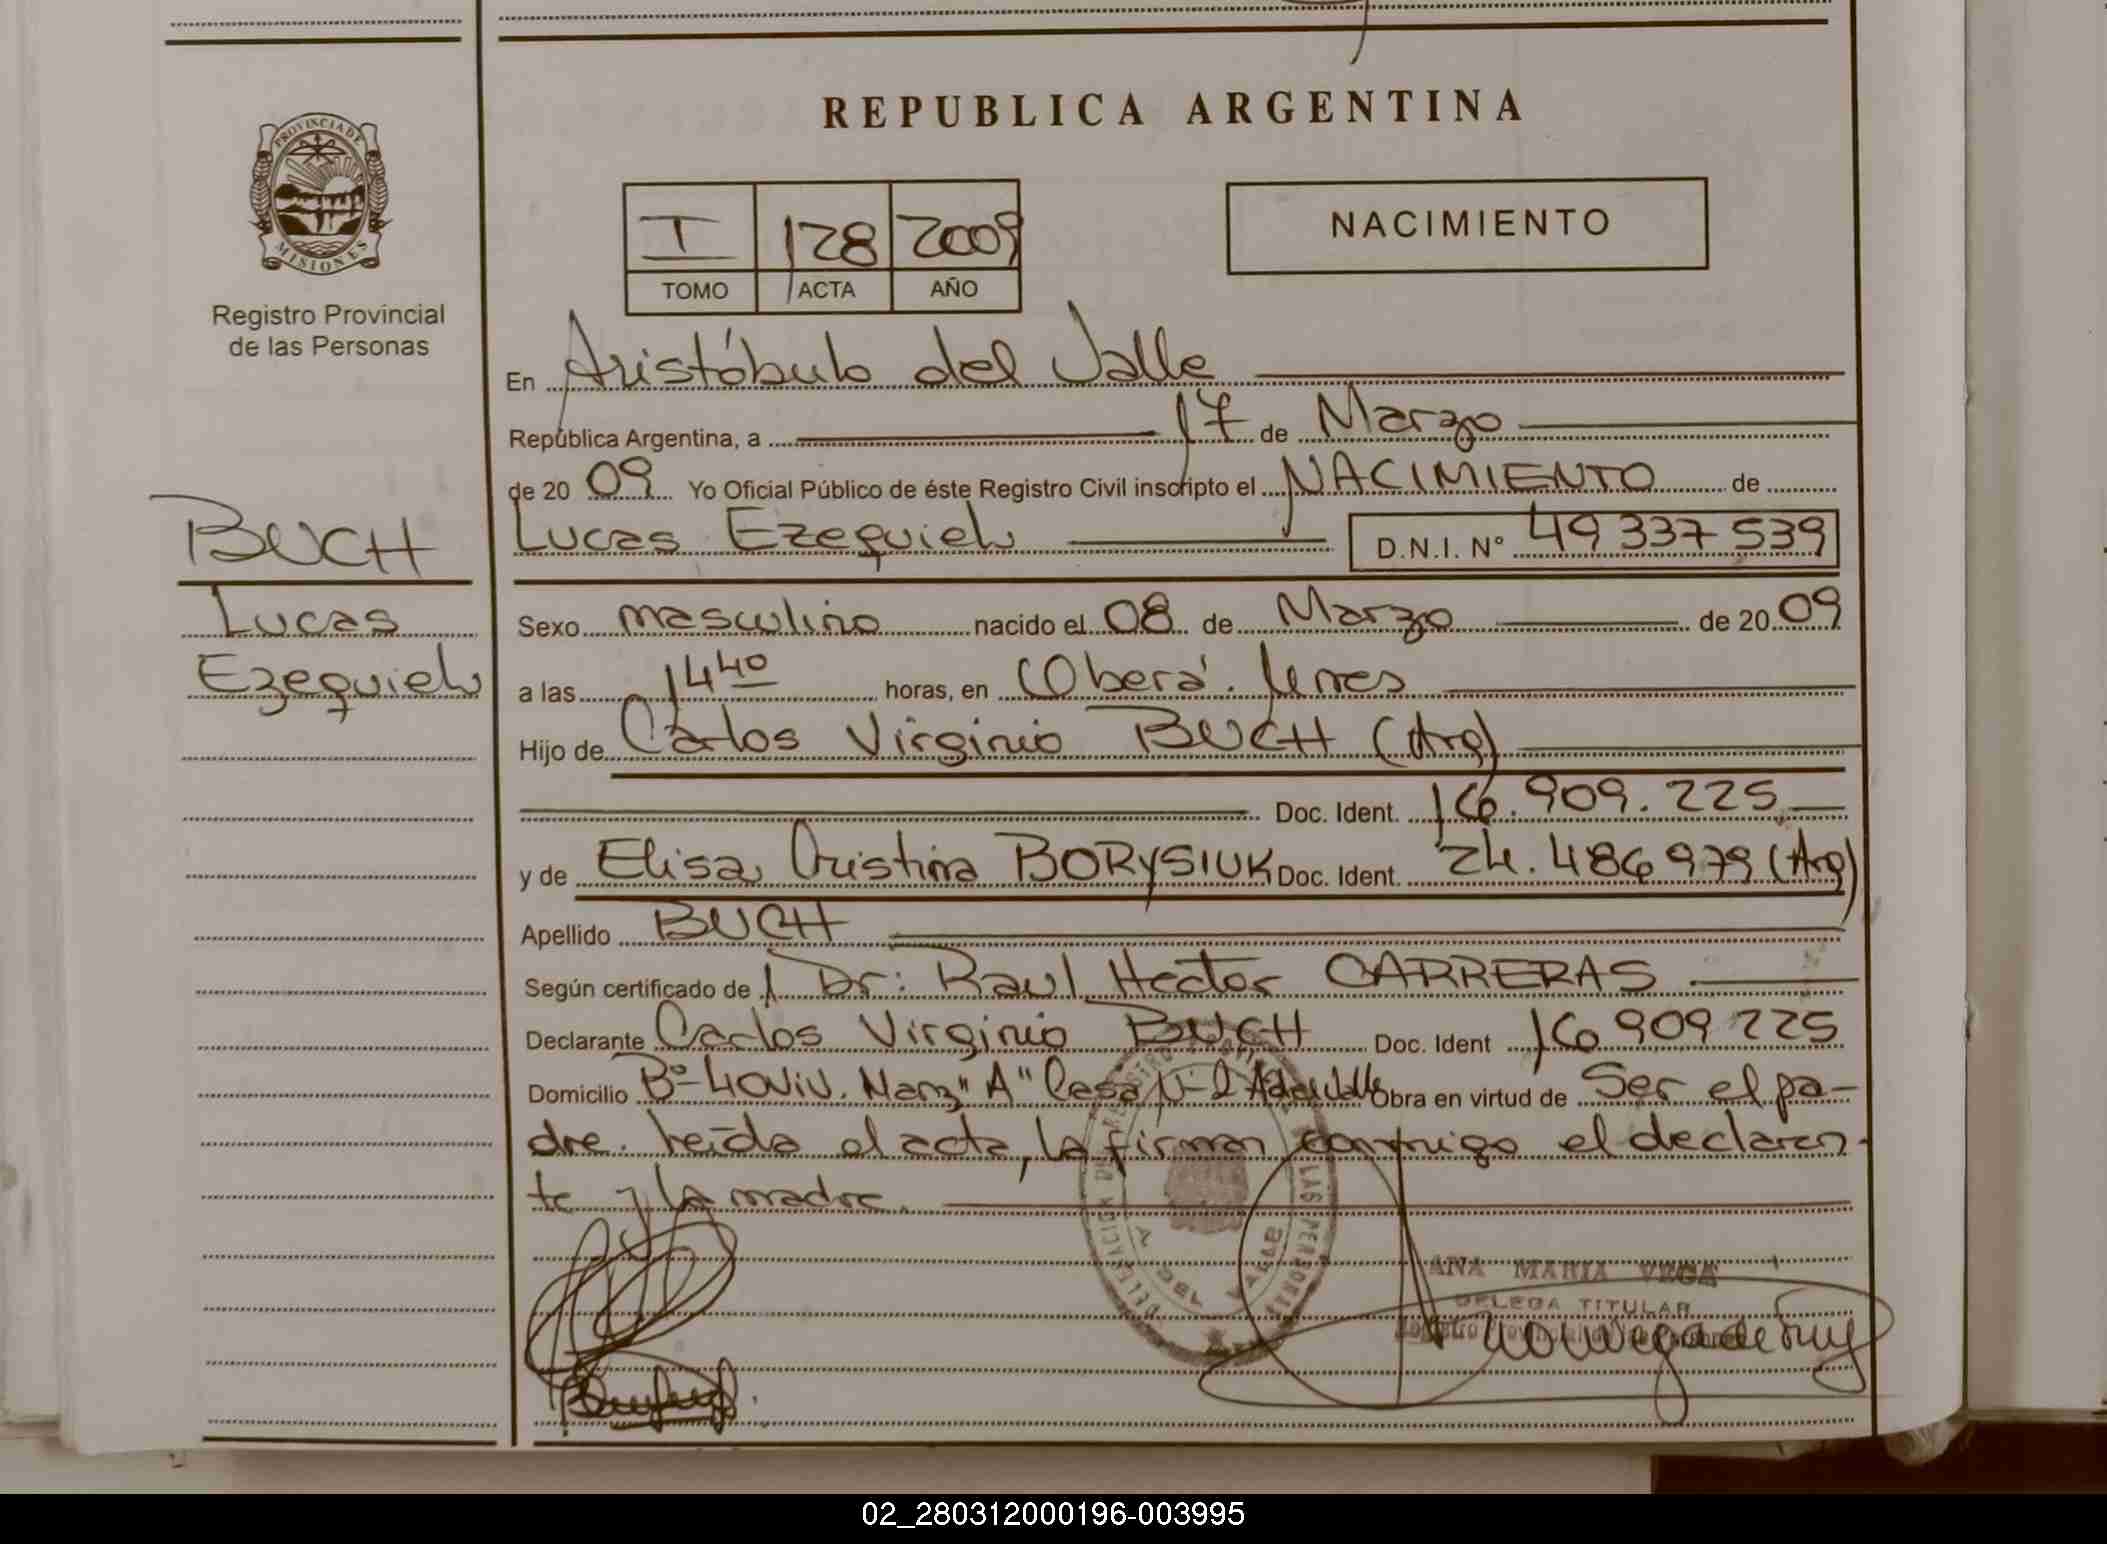 REPUBLICA ARGENTINA
PROVINCIA DE
MISIONES
Registro Provincial
de las Personas
I 128 2009
TOMO ACTA AÑO
NACIMIENTO
En Aristóbulo del Valle
República Argentina, a 17 de Marzo
de 20 09 Yo Oficial Público de éste Registro Civil inscripto el NACIMIENTO de
BUCH
Lucas Ezequiel D.N.I. N° 49 337 539
Lucas
Ezequiel
Sexo masculino nacido el 08 de Marzo de 20 09
a las 14 40 horas, en Oberá.
Hijo de Carlos Virginio BUCH (Arg)
Doc. Ident. 16.909.225
y de Elisa Cristina BORYSIUK Doc. Ident. 24.486979 (Arg)
Apellido BUCH
Según certificado de Dr: Raul Hector CARRERAS
Declarante Carlos Virginio BUCH Doc. Ident 16 909 225
Domicilio B° 40 Viv. Manz "A" Casa N° 2 A del Valle Obra en virtud de Ser el pa-
dre. Leída el acta, la firman conmigo el declaran-
te y la madre.
ANA MARIA VEGA
DELEGA TITULAR
Registro Provincial de las Personas
02_280312000196-003995